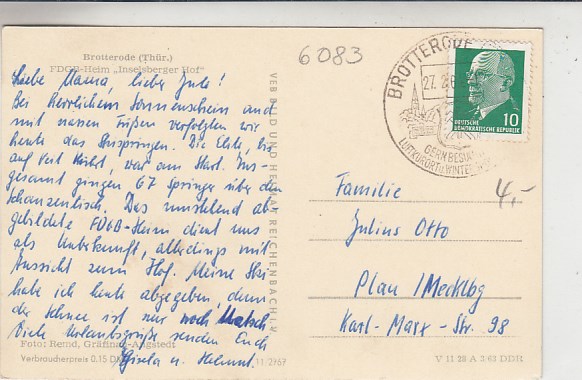 Brotterode (Thür.)
FDGB-Heim „Inselsberger Hof"
Liebe Mama, lieber Jule!
Bei herrlichem Sonnenschein und
mit nassen Füßen verfolgten wir
heute das Skispringen. Die Elite, bis
auf Veit Kührt, war am Start. Ins-
gesamt gingen 67 Springer über den
Schanzentisch. Das umstehend ab-
gebildete FDGB-Heim dient uns
als Unterkunft, allerdings mit
Aussicht zum Hof. Meine Ski
habe ich heute abgegeben, denn
der Schnee ist nur noch Matsch.
Viele Urlaubsgrüße senden Euch
Gisela u. Helmut.
Foto: Remd, Gräfinau-Angstedt
Verbraucherpreis 0,15 DM
VEB BILD UND HEIMAT REICHENBACH i. V.
6083
BROTTERODE
27. 2. 6
GERN BESU
LUFTKURORT u. WINTER
10
DEUTSCHE
DEMOKRATISCHE REPUBLIK
4,-
Familie
Julius Otto
Plau / Mecklbg
Karl-Marx-Str. 98
V 11 28 A 3/63 DDR